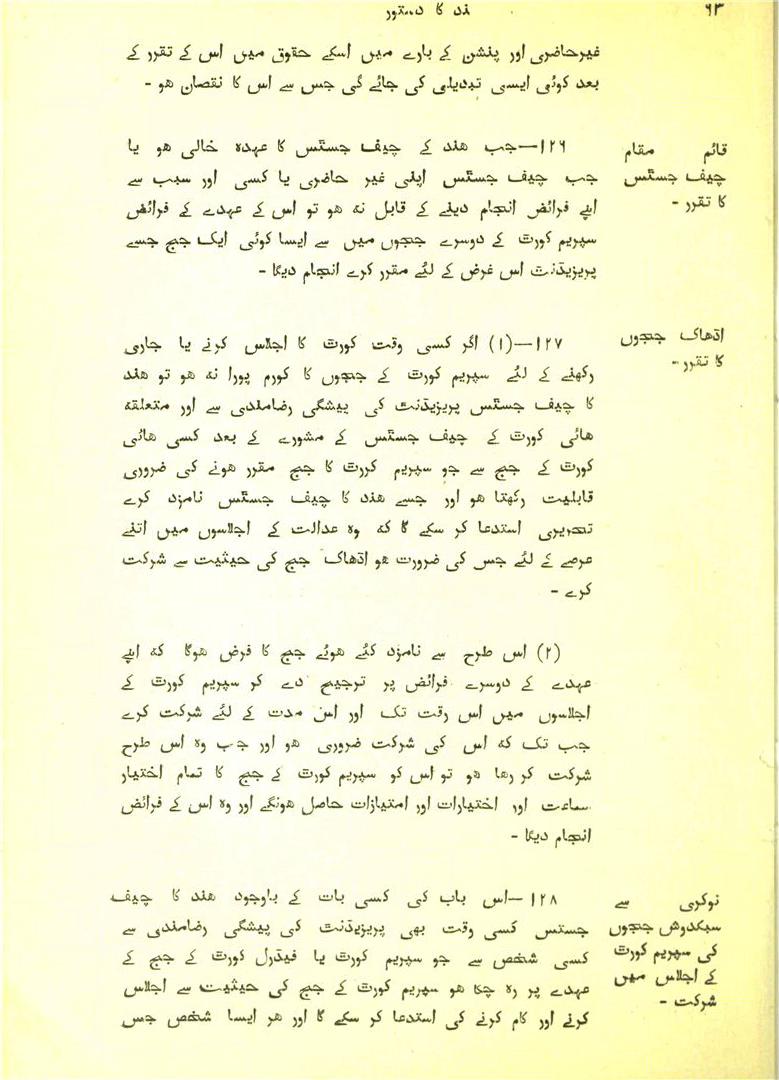 ۶۳
ہند کا دستور
غیرحاضری اور پنشن کے بارے میں اسکے حقوق میں اس کے تقرر کے
بعد کوئی ایسی تبدیلی کی جائے گی جس سے اس کا نقصان ھو -
قائم مقام
چیف جسٹس
کا تقرر -
۱۲۶—جب ھند کے چیف جسٹس کا عہدہ خالی ھو یا
جب چیف جسٹس اپنی غیر حاضری یا کسی اور سبب سے
اپنے فرائض انجام دینے کے قابل نہ ھو تو اس کے عہدے کے فرائض
سپریم کورٹ کے دوسرے ججوں میں سے ایسا کوئی ایک جج جسے
پریزیڈنٹ اس غرض کے لئے مقرر کرے انجام دیگا -
اڈھاک ججوں
کا تقرر -
۱۲۷—(۱) اگر کسی وقت کورٹ کا اجلاس کرنے یا جاری
رکھنے کے لئے سپریم کورٹ کے ججوں کا کورم پورا نہ ھو تو ھند
کا چیف جسٹس پریزیڈنٹ کی پیشگی رضامندی سے اور متعلقہ
ھائی کورٹ کے چیف جسٹس کے مشورے کے بعد کسی ھائی
کورٹ کے جج سے جو سپریم کررٹ کا جج مقرر ھونے کی ضروری
قابلیت رکھتا ھو اور جسے ھند کا چیف جسٹس نامزد کرے
تحریری استدعا کر سکے گا کہ وہ عدالت کے اجلاسوں میں اتنے
عرصے کے لئے جس کی ضرورت ھو اڈھاک جج کی حیثیت سے شرکت
کرے -
(۲) اس طرح سے نامزد کئے ھوئے جج کا فرض ھوگا کہ اپنے
عہدے کے دوسرے فرائض پر ترجیح دے کر سپریم کورٹ کے
اجلاسوں میں اس رقت تک اور اس مدت کے لئے شرکت کرے
جب تک کہ اس کی شرکت ضروری ھو اور جب وہ اس طرح
شرکت کر رھا ھو تو اس کو سپریم کورٹ کے جج کا تمام اختیار
سماعت اور اختیارات اور امتیازات حاصل ھونگے اور وہ اس کے فرائض
انجام دیگا -
نوکری سے
سبکدوش ججوں
کی سپریم کورٹ
کے اجلاس میں
شرکت -
۱۲۸—اس باب کی کسی بات کے باوجود ھند کا چیف
جسٹس کسی وقت بھی پریزیڈنٹ کی پیشگی رضامندی سے
کسی شخص سے جو سپریم کورٹ یا فیڈرل کورٹ کے جج کے
عہدے پر رہ چکا ھو سپریم کورٹ کے جج کی حیثیت سے اجلاس
کرنے اور کام کرنے کی استدعا کر سکے گا اور ھر ایسا شخص جس